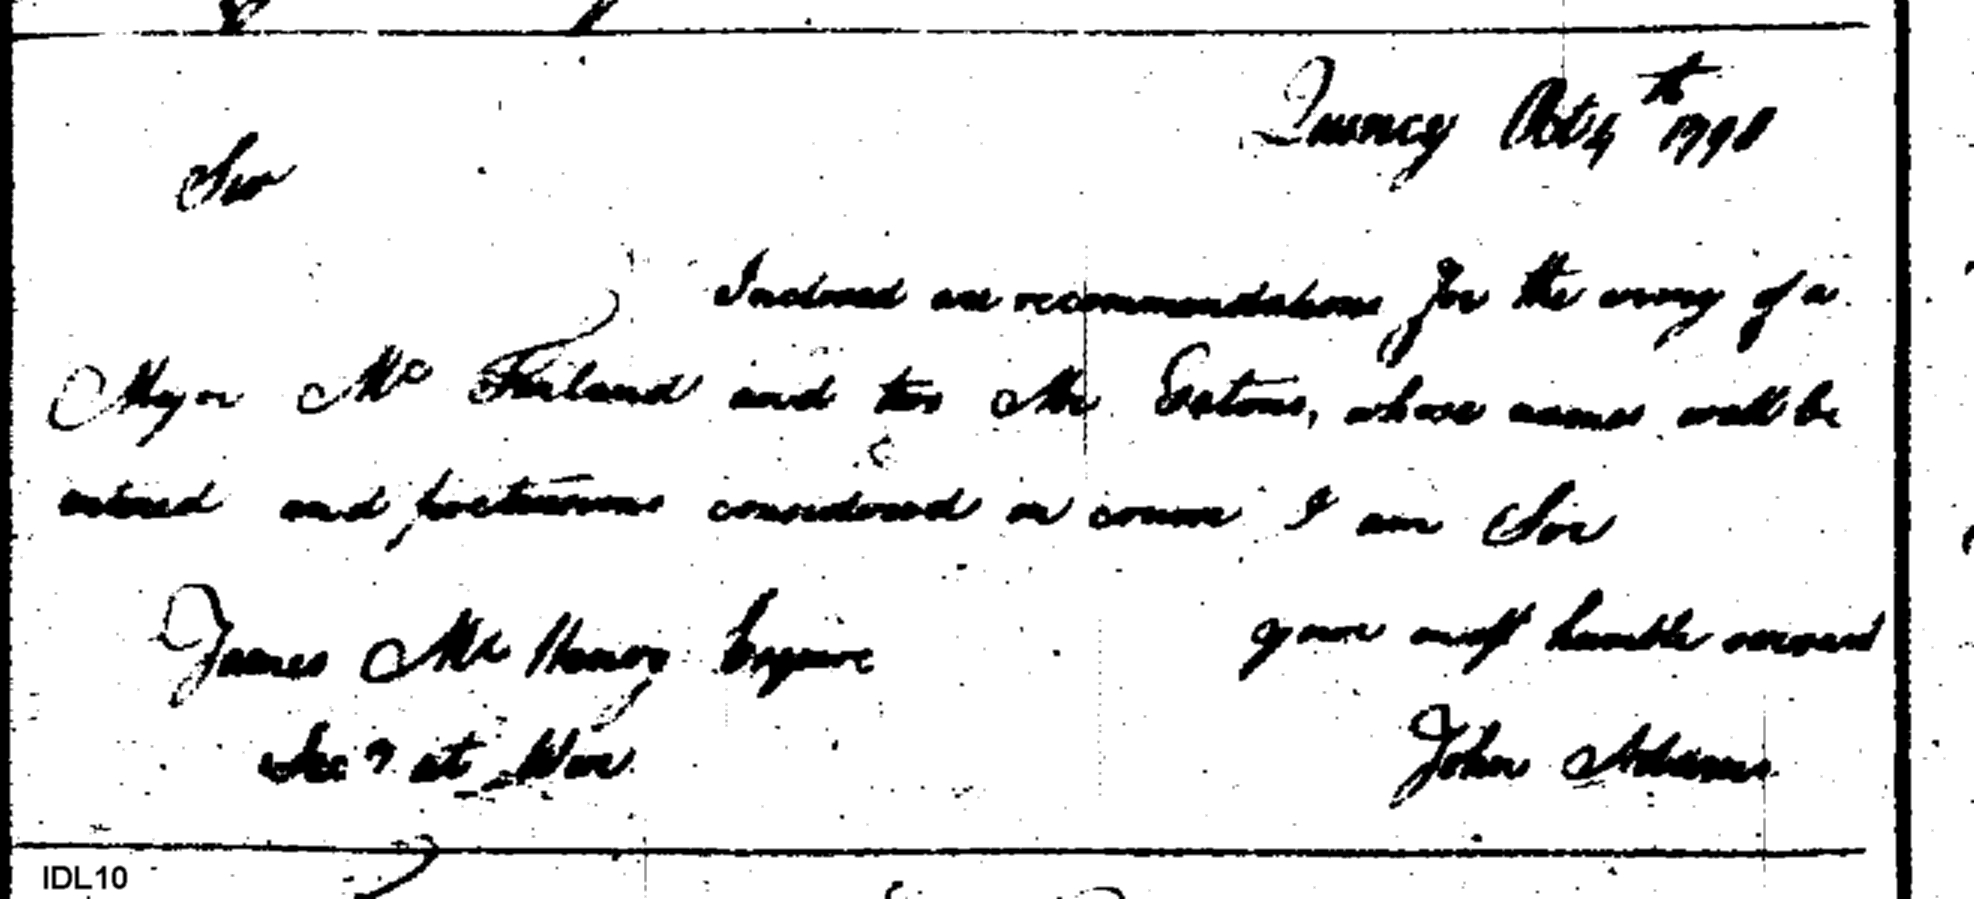 Quincy Oct 4th 1798
Sir
Inclosed are recommendations for the army of a
Major Mc Farland and two Mr Eatons, whose names will be
entered and pretensions considered in course I am Sir
James Mc Henry Esquire your most humble servant
Secy at War John Adams
IDL10